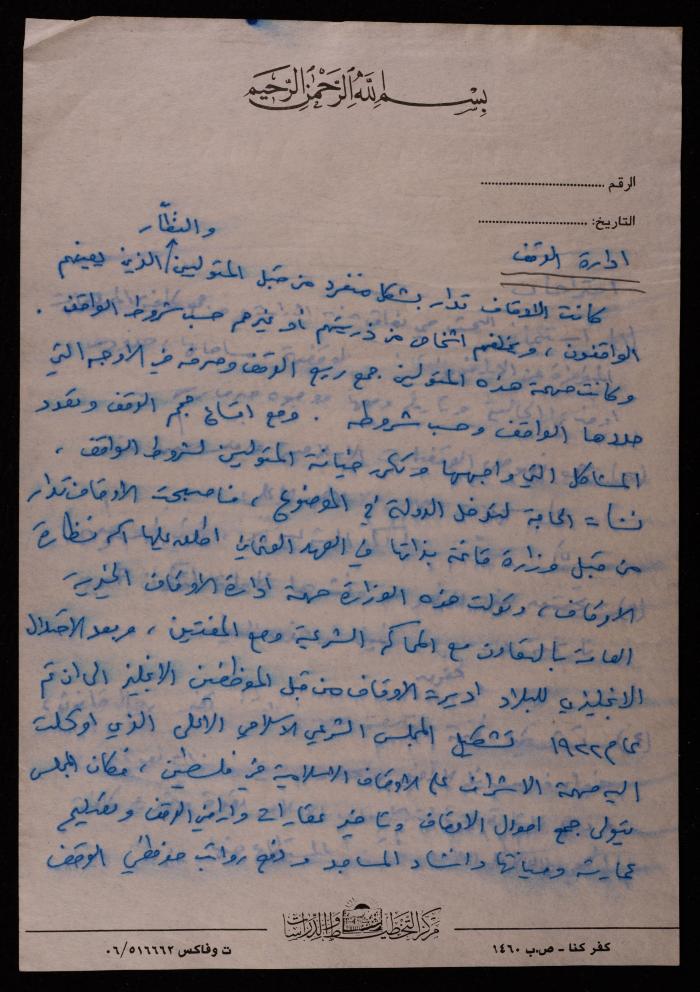 بسم الله الرحمن الرحيم
الرقم ........................
التاريخ: ........................
ادارة الوقف
والنظّار
كانت الاوقاف تدار بشكل منفرد من قبل المتولين الذين يعينهم
الواقفون، ويخلفهم اشخاص من ذريتهم أو غيرهم حسب شروط الواقف.
وكانت مهمة هذه المتولين جمع ريع الوقف وصرفه في الاوجه التي
حددها الواقف وحسب شروطه. ومع اتساع حجم الوقف وتعدد
المشاكل التي واجهها وتكرر خيانة المتولين لشروط الواقف،
نشأت الحاجة لتدخل الدولة في الموضوع، فاصبحت الاوقاف تدار
من قبل وزارة قائمة بذاتها في العهد العثماني اطلق عليها اسم نظارة
الاوقاف، وتولت هذه الوزارة مهمة ادارة الاوقاف الخيرية
العامة بالتعاون مع المحاكم الشرعية ومع المفتين، وبعد الاحتلال
الانجليزي للبلاد اديرت الاوقاف من قبل الموظفين الانجليز الى ان تم
عام ١٩٢٢ تشكيل المجلس الشرعي الاسلامي الاعلى الذي اوكلت
اليه مهمة الاشراف على الاوقاف الاسلامية في فلسطين، فكان المجلس
يتولى جمع اموال الاوقاف وتأجير عقارات واراضي الوقف وتصليح
عماراته وصيانتها وانشاء المساجد ودفع رواتب موظفي الوقف
مركز التخطيط والدراسات
كفر كنا - ص.ب ١٤٦٠
ت وفاكس ٠٦/٥١٦٦٦٢